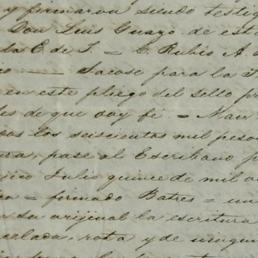 y firmaron siendo testig
Don Luis Guazo de est
da C. de S. = E. Rubio A. d
co —— Sacose para la
en este pliego del sello pr
les de que doy fé = Nau
os los seiscientos mil pesos
ura, pase al Escribano p
Julio quince de mil o
a = firmado Batres = un
su orijinal la escritura
celada, rota y de ningun